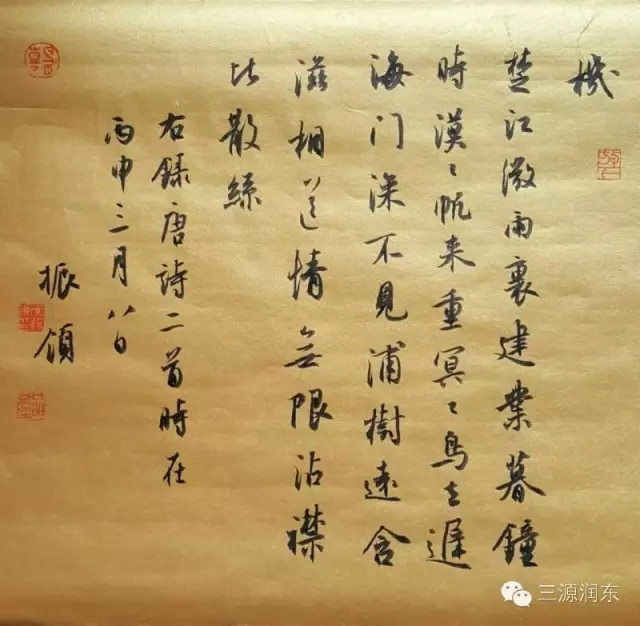 機
楚江微雨裏建業暮鐘
時漠〻帆来重冥〻鳥去遲
海门深不見浦樹遠含
滋相送情無限沾襟
比散絲
右録唐詩二首時在
丙申三月八日
振領
三源润东